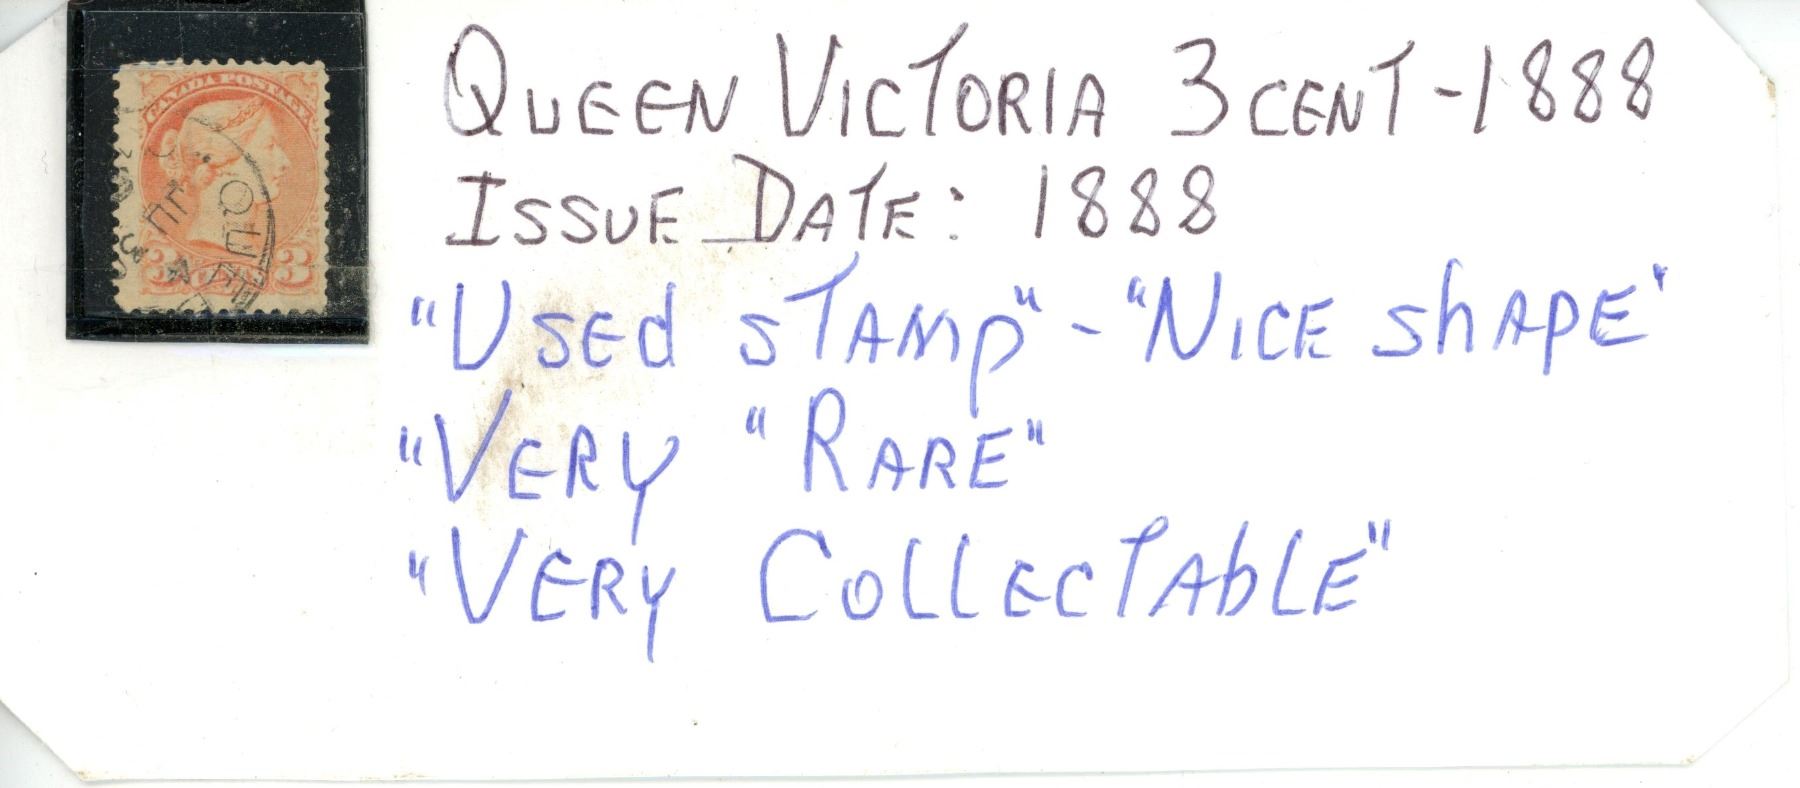 CANADA POSTAGE
3 CENTS 3
QUEEN VICTORIA 3 CENT - 1888
ISSUE DATE: 1888
"USEd STAMP" - "NICE ShAPE"
"VERY "RARE"
"VERY COLLECTAbLE"